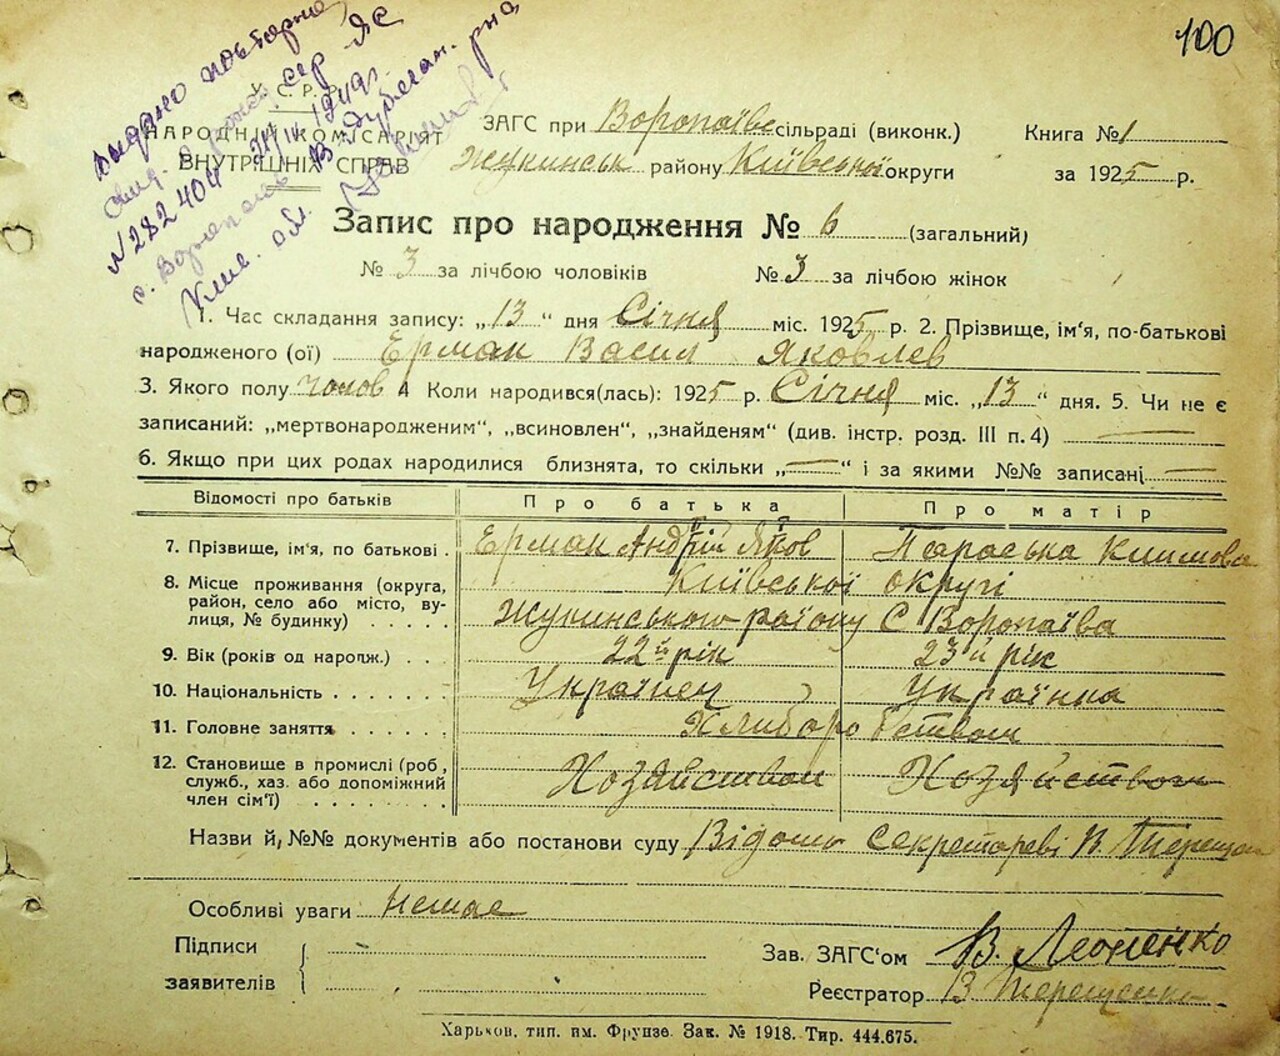 100
Видано повторне
№282404
У. С. Р. Р.
НАРОДНІЙ КОМІСАРІЯТ
ВНУТРІШНІХ СПРАВ
ЗАГС при Воропаївс сільраді (виконк.)
Жукинськ району Київської округи
Книга № 1
за 1925 р.
Запис про народження № 6 (загальний)
№ 3 за лічбою чоловіків № 3 за лічбою жінок
1. Час складання запису: „13“ дня Січня міс. 1925 р. 2. Прізвище, ім'я, по-батькові
народженого (ої) Ермак Васил Яковлев
3. Якого полу чолов 4 Коли народився(лась): 1925 р. Січня міс. „13“ дня. 5. Чи не є
записаний: „мертвонародженим“, „всиновлен“, „знайденям“ (див. інстр. розд. III п. 4)
6. Якщо при цих родах народилися близнята, то скільки „—“ і за якими №№ записані —
Відомості про батьків Про батька Про матір
7. Прізвище, ім'я, по батькові . Ермак Андрій Яков Параська Климова
8. Місце проживання (округа, Київської округі
район, село або місто, ву-
лиця, № будинку) . . . . . Жукинського району С Воропаїва
9. Вік (років од народж.) . . . 22й рік 23й рік
10. Національність . . . . . . . Українец Українка
11. Головне заняття . . . . . . Хлиборобством
12. Становище в промислі (роб, Хозяйством Хозяйством
служб., хаз. або допоміжний
член сім'ї) . . . . . . . . . .
Назви й, №№ документів або постанови суду Відомо секретареві В. Терещен
Особливі уваги Немае
Підписи
заявителів
Зав. ЗАГС'ом В. Леоненко
Реєстратор В Терещенко
Харьков, тип. им. Фрунзе. Зак. № 1918. Тир. 444.675.